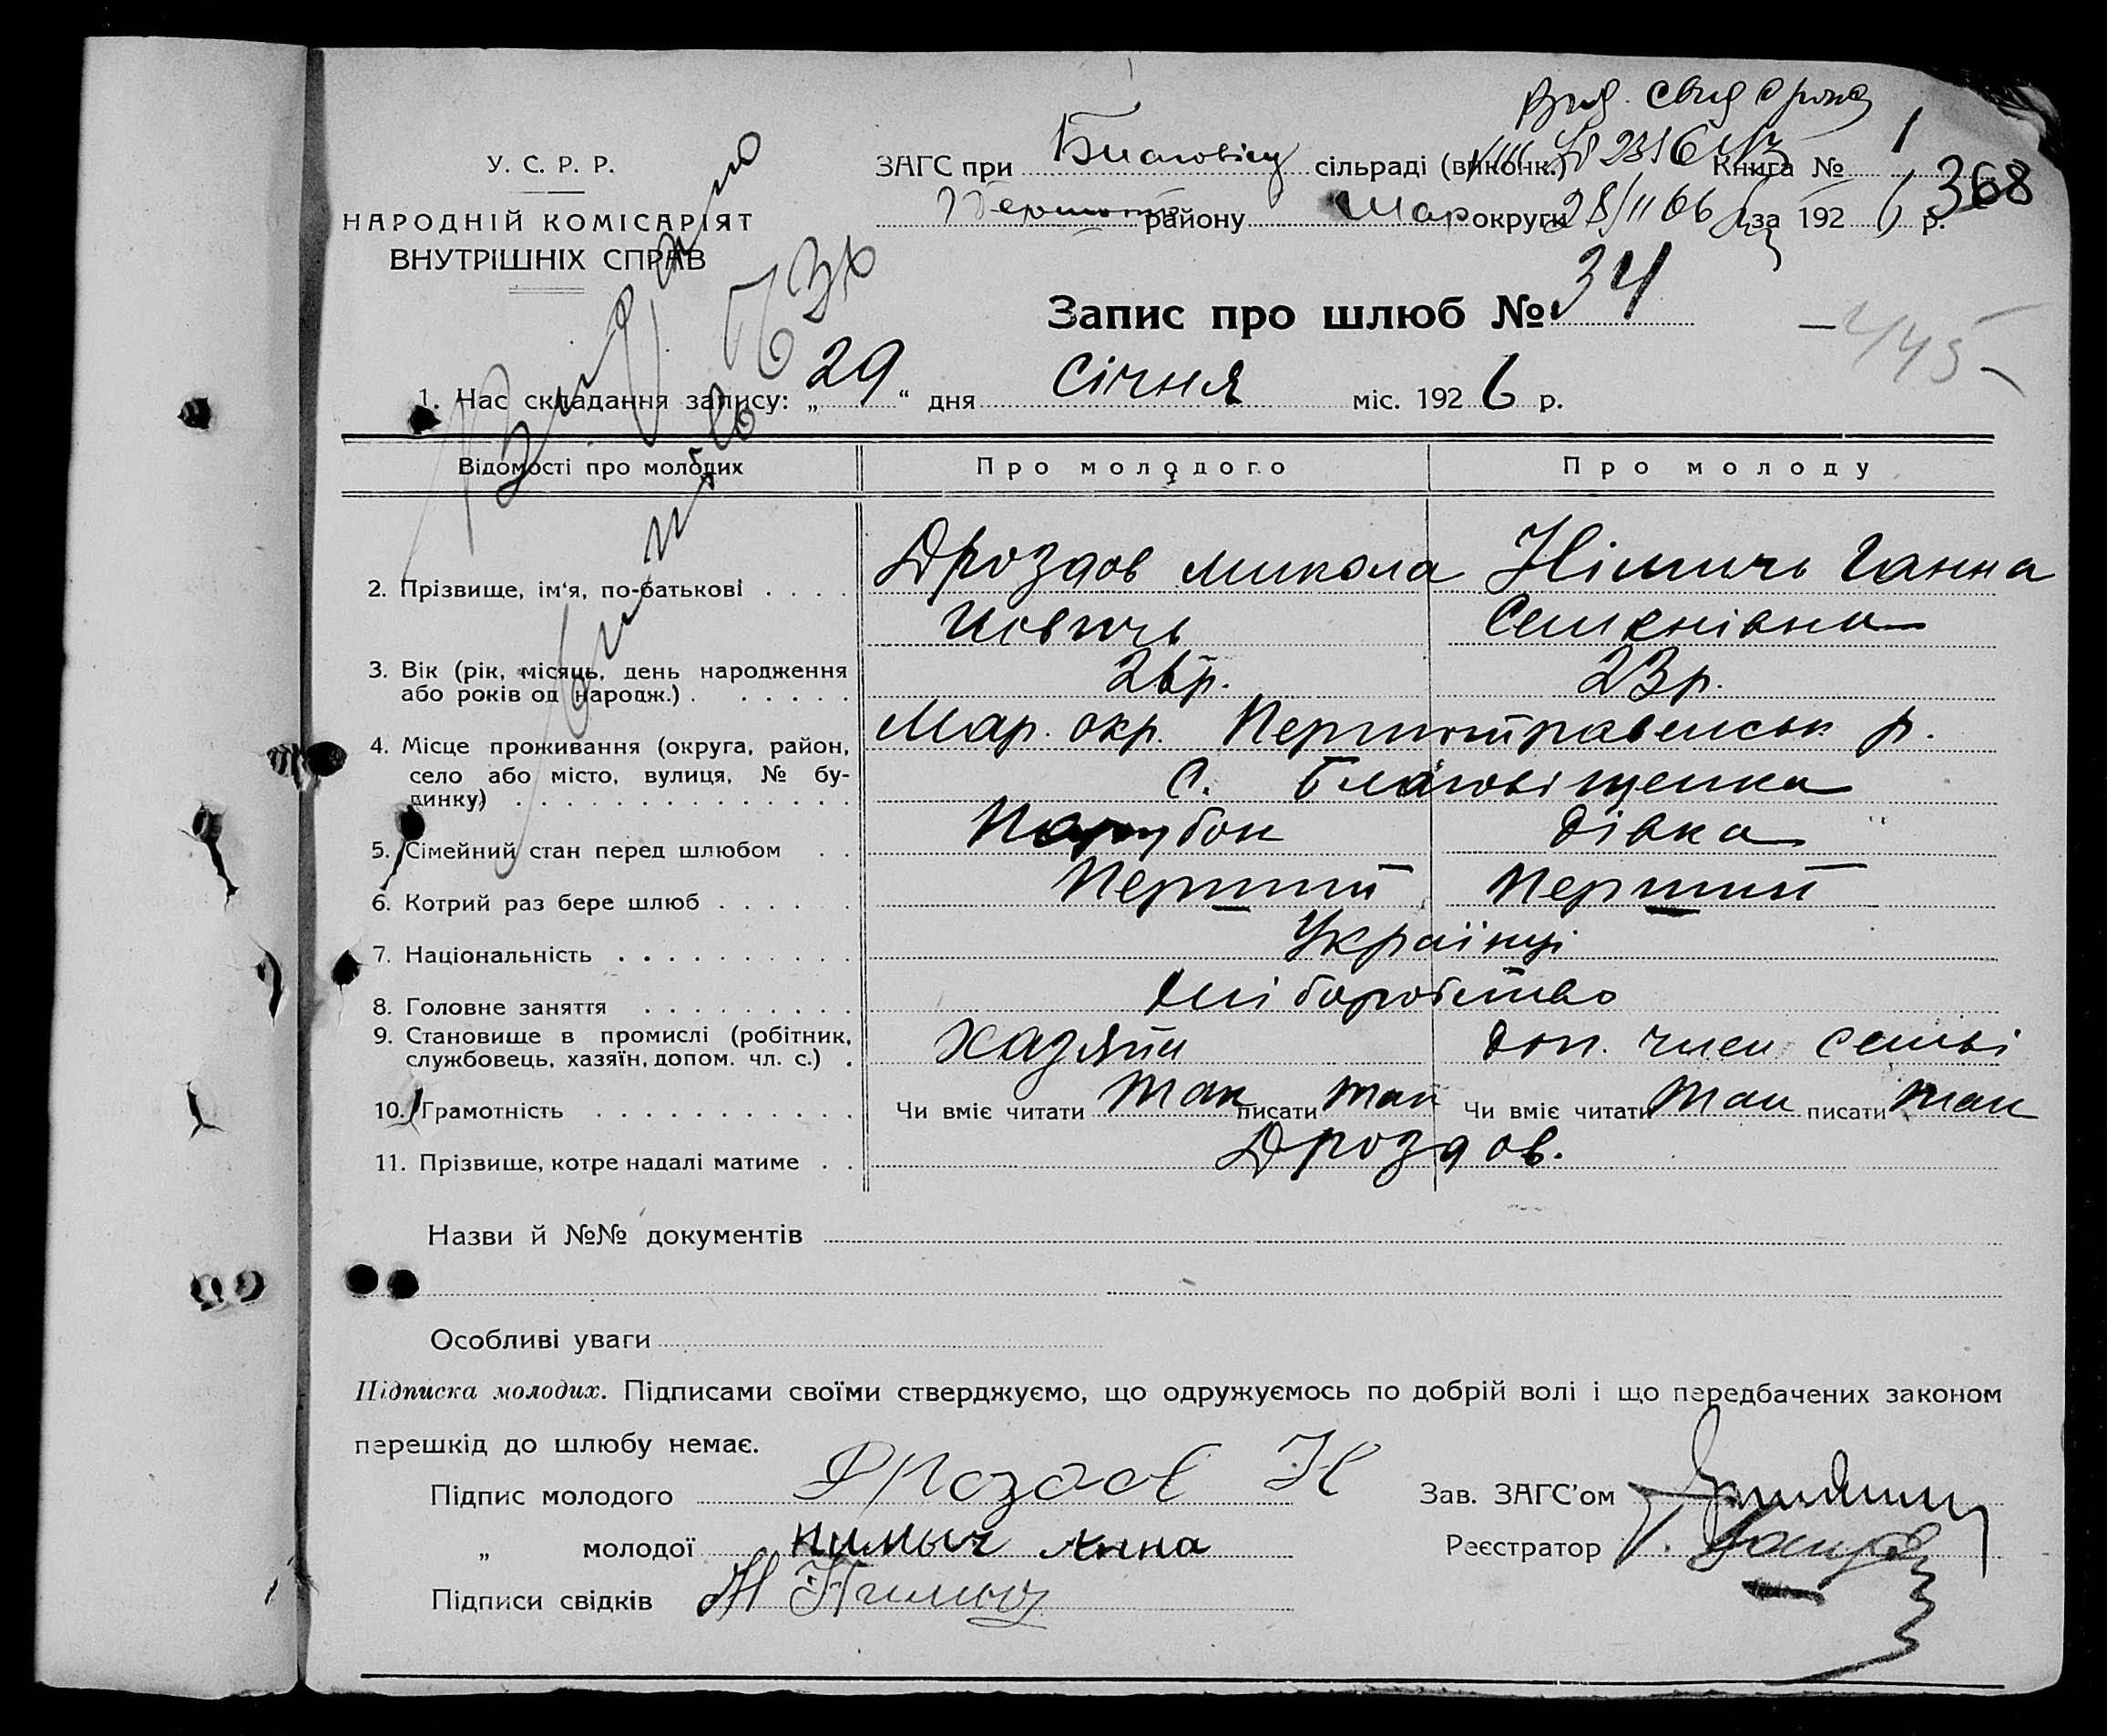 Вид. свид о рожд
У. С. Р. Р.
НАРОДНІЙ КОМІСАРІЯТ
ВНУТРІШНІХ СПРАВ
ЗАГС при Благовіщ сільраді (виконк.) Книга № 1
району Мар округи за 192 6 р.
368
28/II 66
Запис про шлюб № 34
445
1. Час складання запису: „29“ дня Січня міс. 192 6 р.
Видано
Відомості про молодих Про молодого Про молоду
2. Прізвище, ім'я, по-батькові . . . . Дроздов Микола Німичь Ганна
Семенівна
3. Вік (рік, місяць, день народження
або років од народж.) . . . . . . 26р. 23р.
4. Місце проживання (округа, район, Мар. окр. Першотравенськ р.
село або місто, вулиця, № бу-
динку) . . . . . . . . . . . . . . с. Благовіщенка
5. Сімейний стан перед шлюбом . . Парубок дівка
6. Котрий раз бере шлюб . . . . . . Перший Перший
7. Національність . . . . . . . . . . Українці
8. Головне заняття . . . . . . . . . хліборобство
9. Становище в промислі (робітник,
службовець, хазяїн, допом. чл. с.) . Хазяїн доп. член семьі
10. Грамотність . . . . . . . . . . . . Чи вміє читати так писати так Чи вміє читати так писати так
11. Прізвище, котре надалі матиме . . Дроздов.
Назви й №№ документів
Особливі уваги
Підписка молодих. Підписами своїми стверджуємо, що одружуємось по добрій волі і що передбачених законом
перешкід до шлюбу немає.
Підпис молодого Дроздов Н Зав. ЗАГС'ом
„ молодої Нимыч Анна Реєстратор
Підписи свідків Н Нимыч